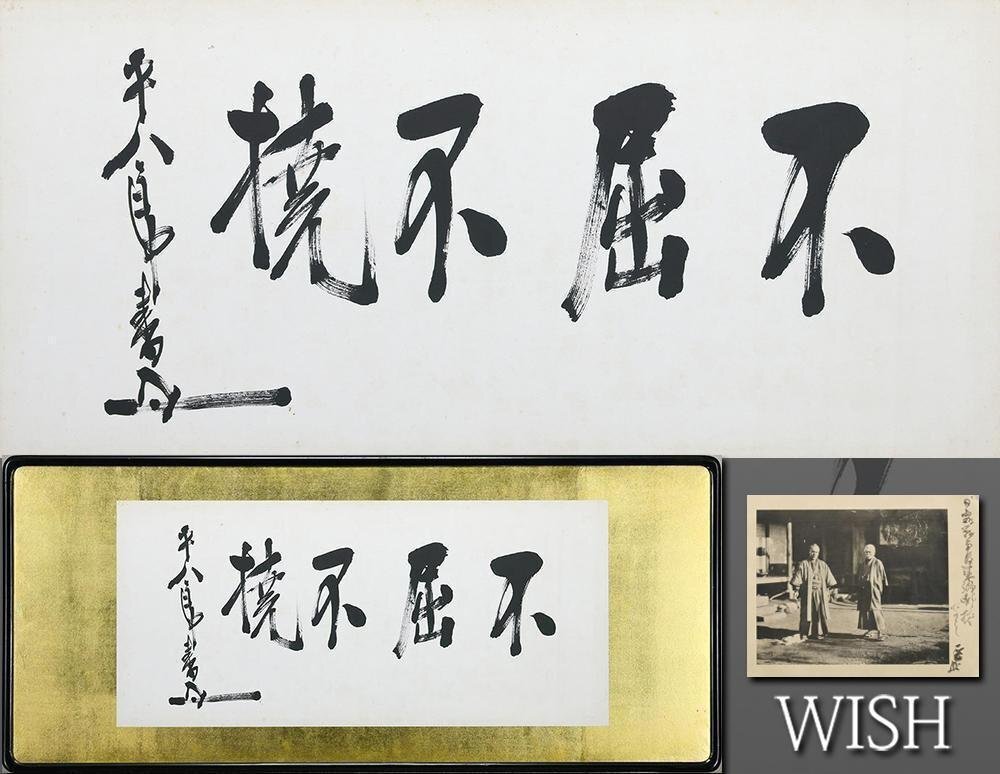 不屈不撓
平八郎書
不屈不撓
平八郎書
WISH